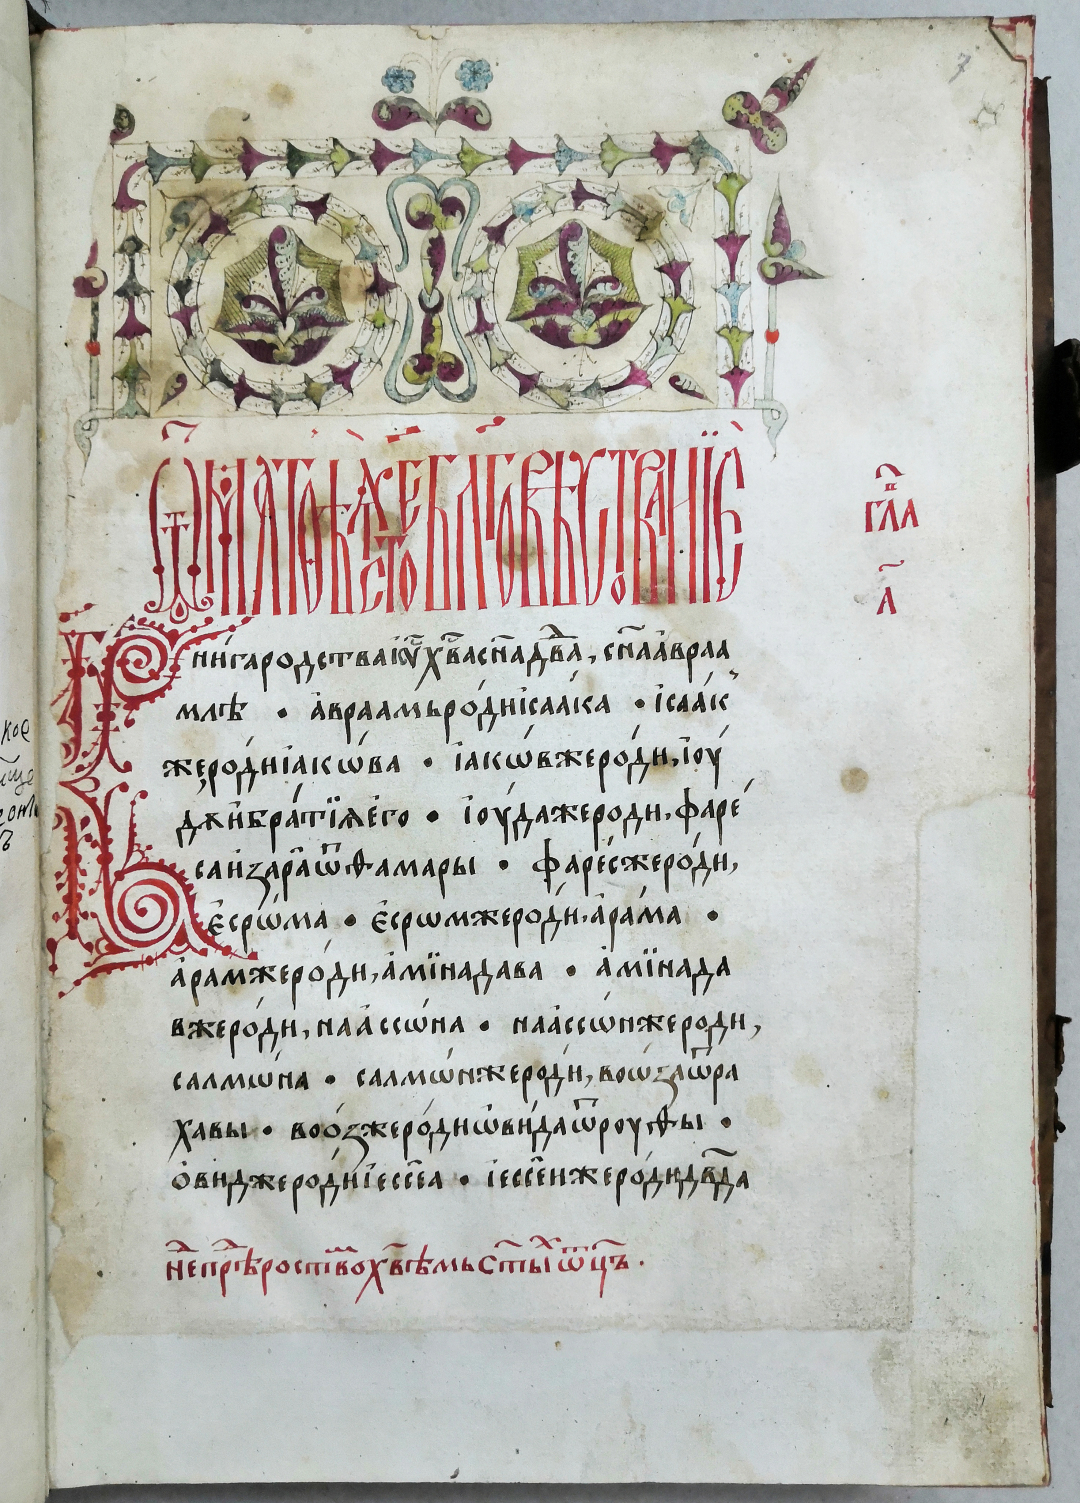 7
Ѿ матѳеа ст҃о е блговѣствованїе
гл҃а
а҃
Книга родства і҆у҃ х҃ва сн҃а дв҃да, сн҃а а҆враа
млѣ · а҆враамъ роди і҆саака · і҆саак
же роди і҆акѡва · і҆акѡв же роди, і҆оу
дꙋ и братїѧ е҆го · і҆оуда же роди, фаре
са и зара ѿ ѳамары · фарес же роди,
е҆срѡма · е҆сром же роди, а҆рама ·
а҆рам же роди, а҆мїнадава · а҆мїнада
в же роди, наассѡна · наассѡн же роди,
салмѡна · салмѡн же роди, воѡза ѿ ра
хавы · вооз же роди ѡ҆вида ѿ роуѳы ·
ѻ҆вид же роди і҆ессеа · і҆ессеи же роди дв҃да
не пре роствѡ х҃вѣмь ст҃ых ѿц҃ъ.